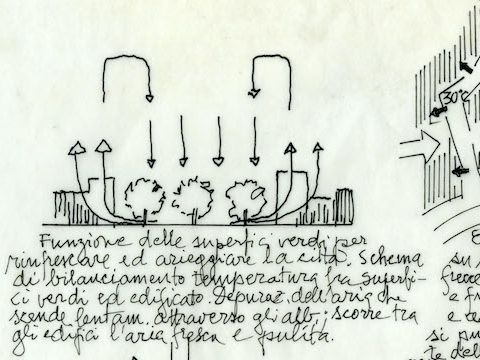 30°C
Funzione delle superfici verdi per
rinfrescare ed arieggiare la città. Schema
di bilanciamento temperatura fra superfi-
ci verdi ed edificato. Depuraz. dell'aria che
scende attraverso gli alb., scorre tra
gli edifici l'aria fresca e pulita.
su
e
e te
si